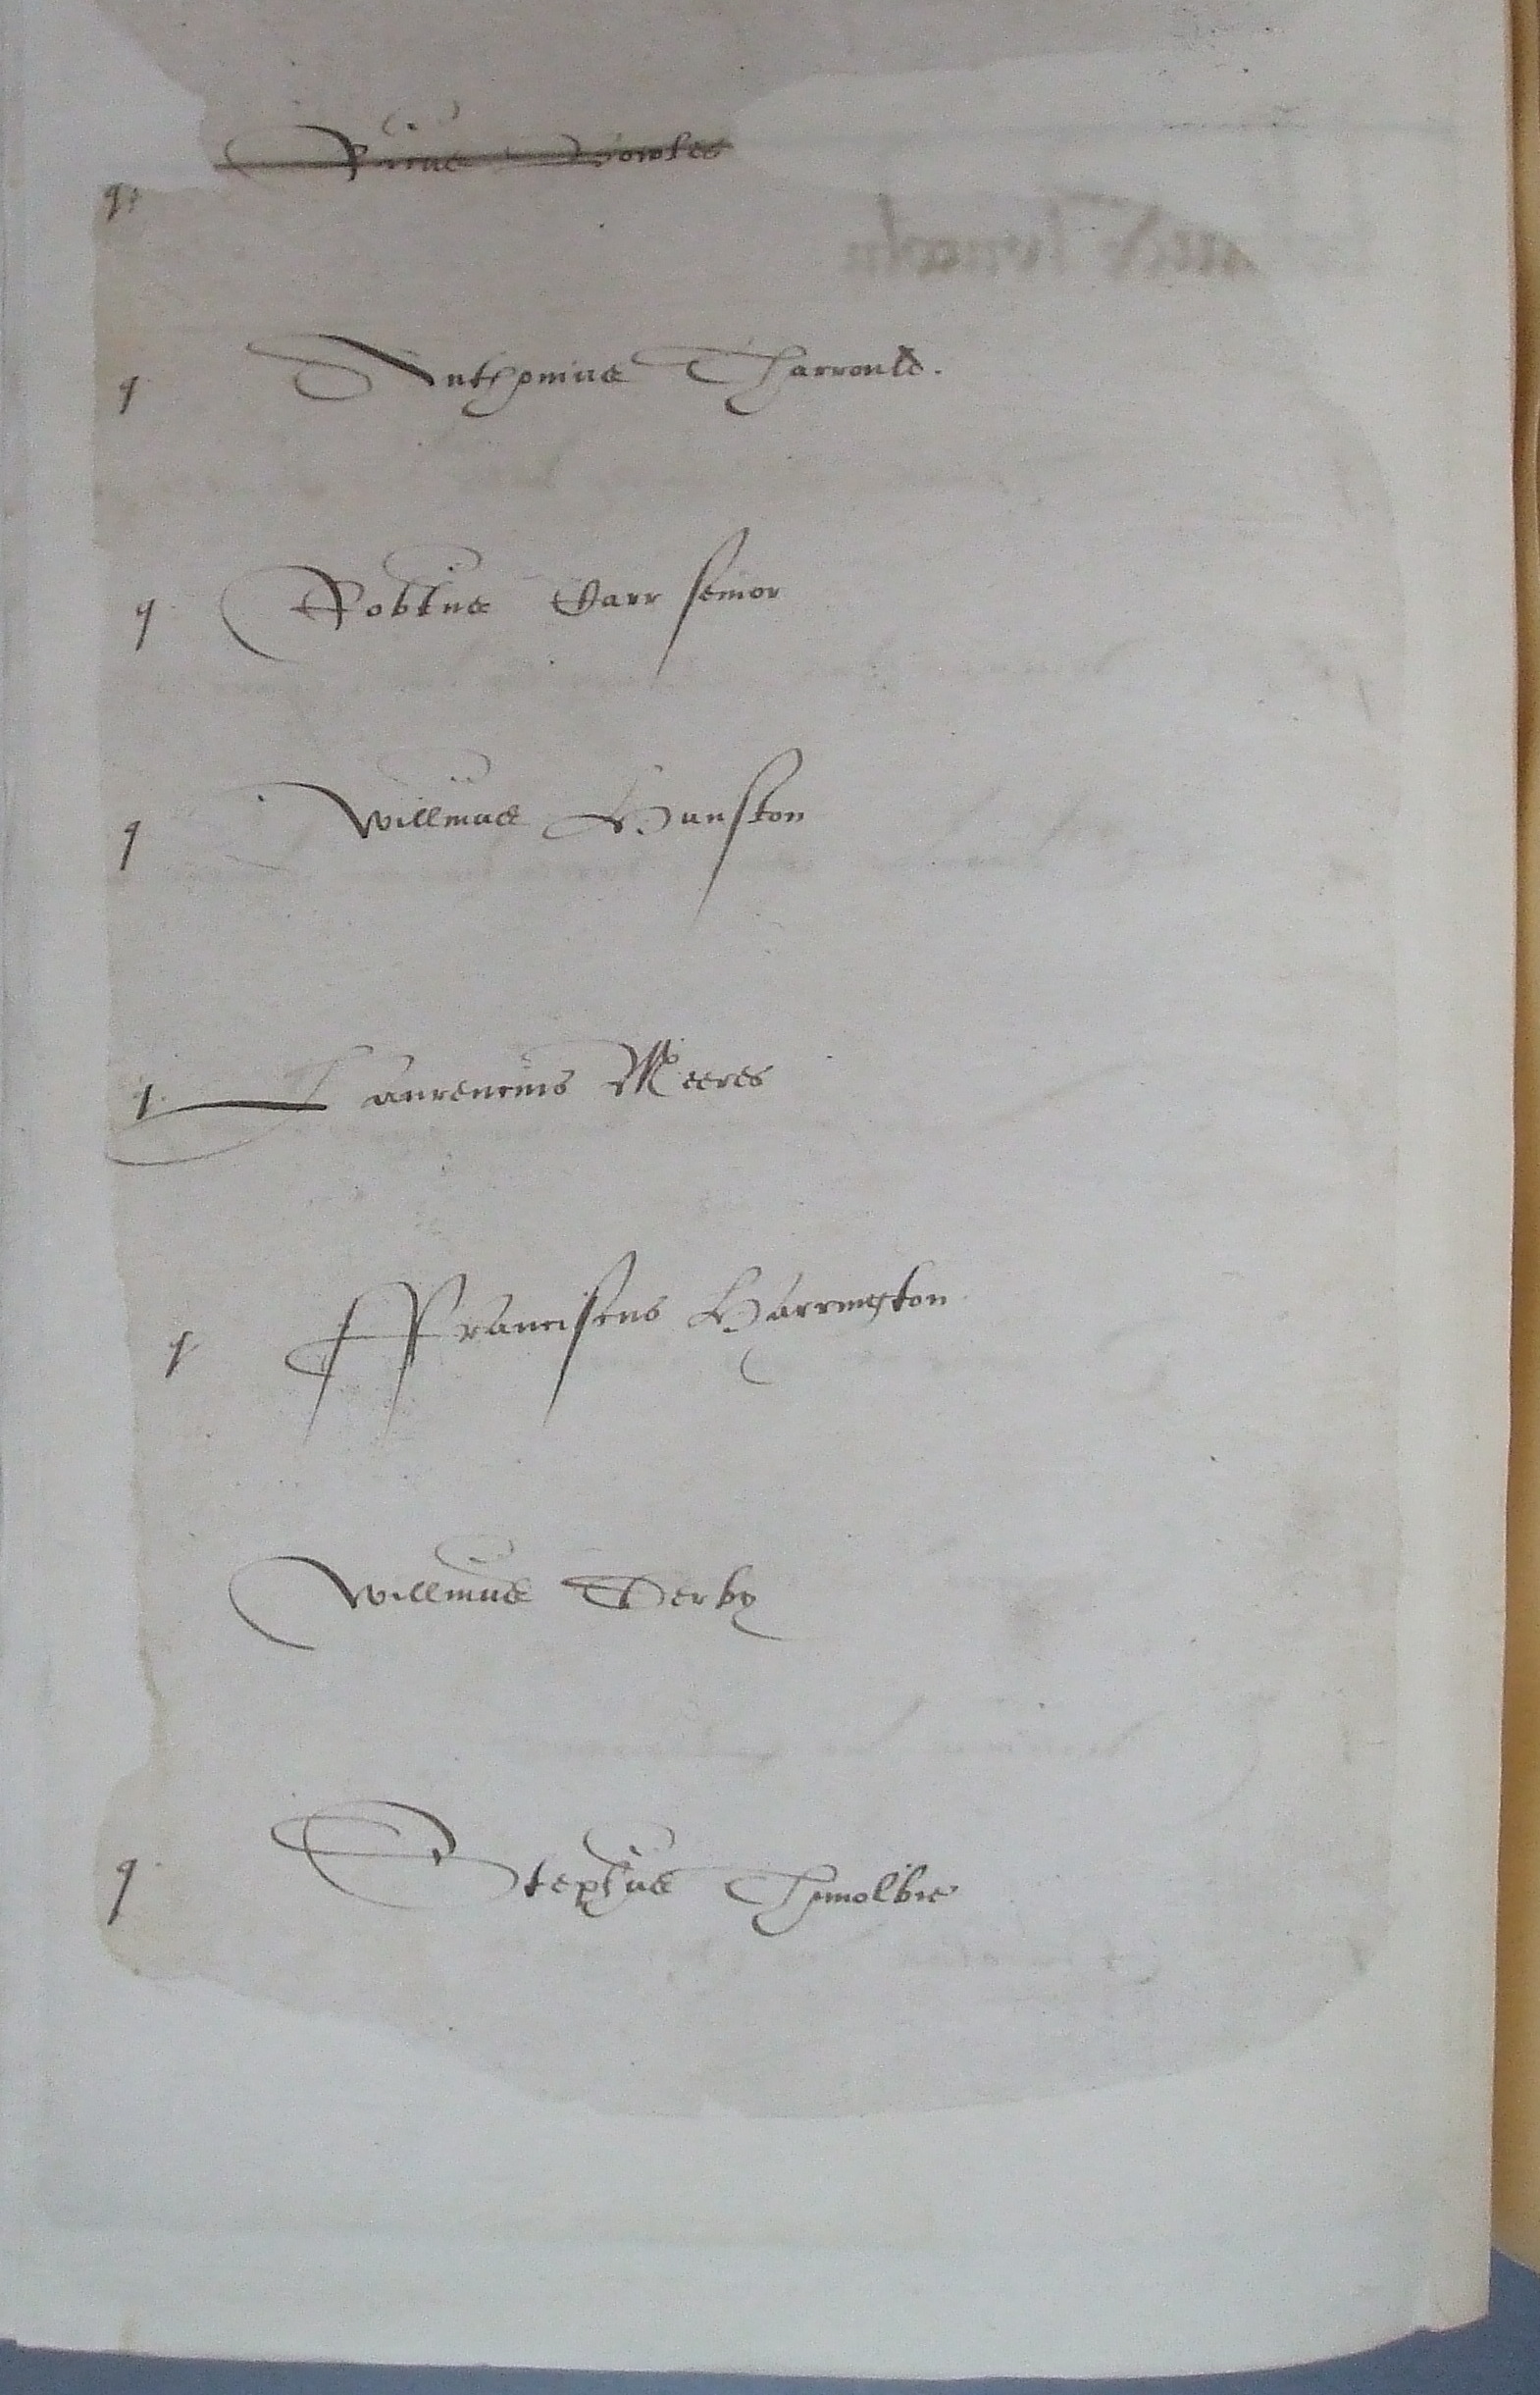 q
q Anthonius Tharrould.
q Robtus Carr senior
q Willmus Hunston
q Laurencius Meeres
q ffranciscus Harrington
Willmus Derby
q Stephus Thymolbie